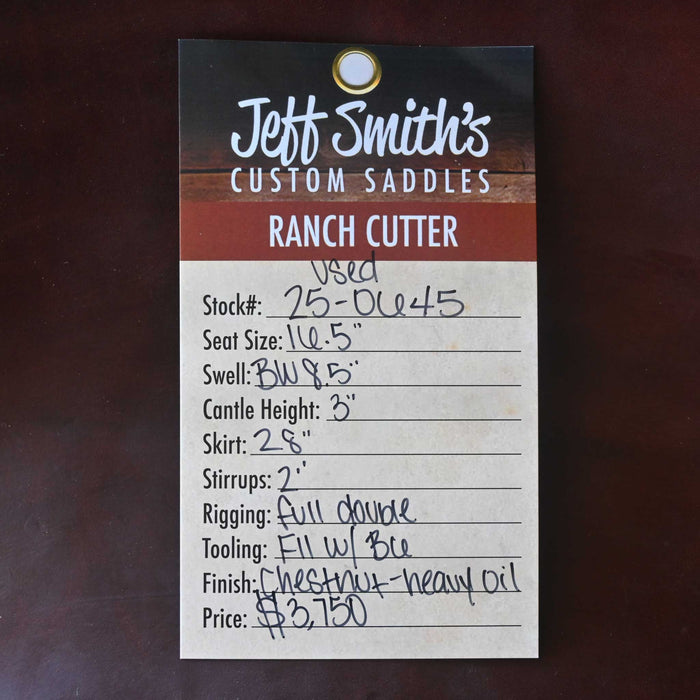 Jeff Smith's
CUSTOM SADDLES
RANCH CUTTER
used
Stock#: 25-0645
Seat Size: 16.5"
Swell: BW 8.5"
Cantle Height: 3"
Skirt: 28"
Stirrups: 2"
Rigging: full double
Tooling: F11 w/ BC6
Finish: Chestnut-heavy oil
Price: $3,750